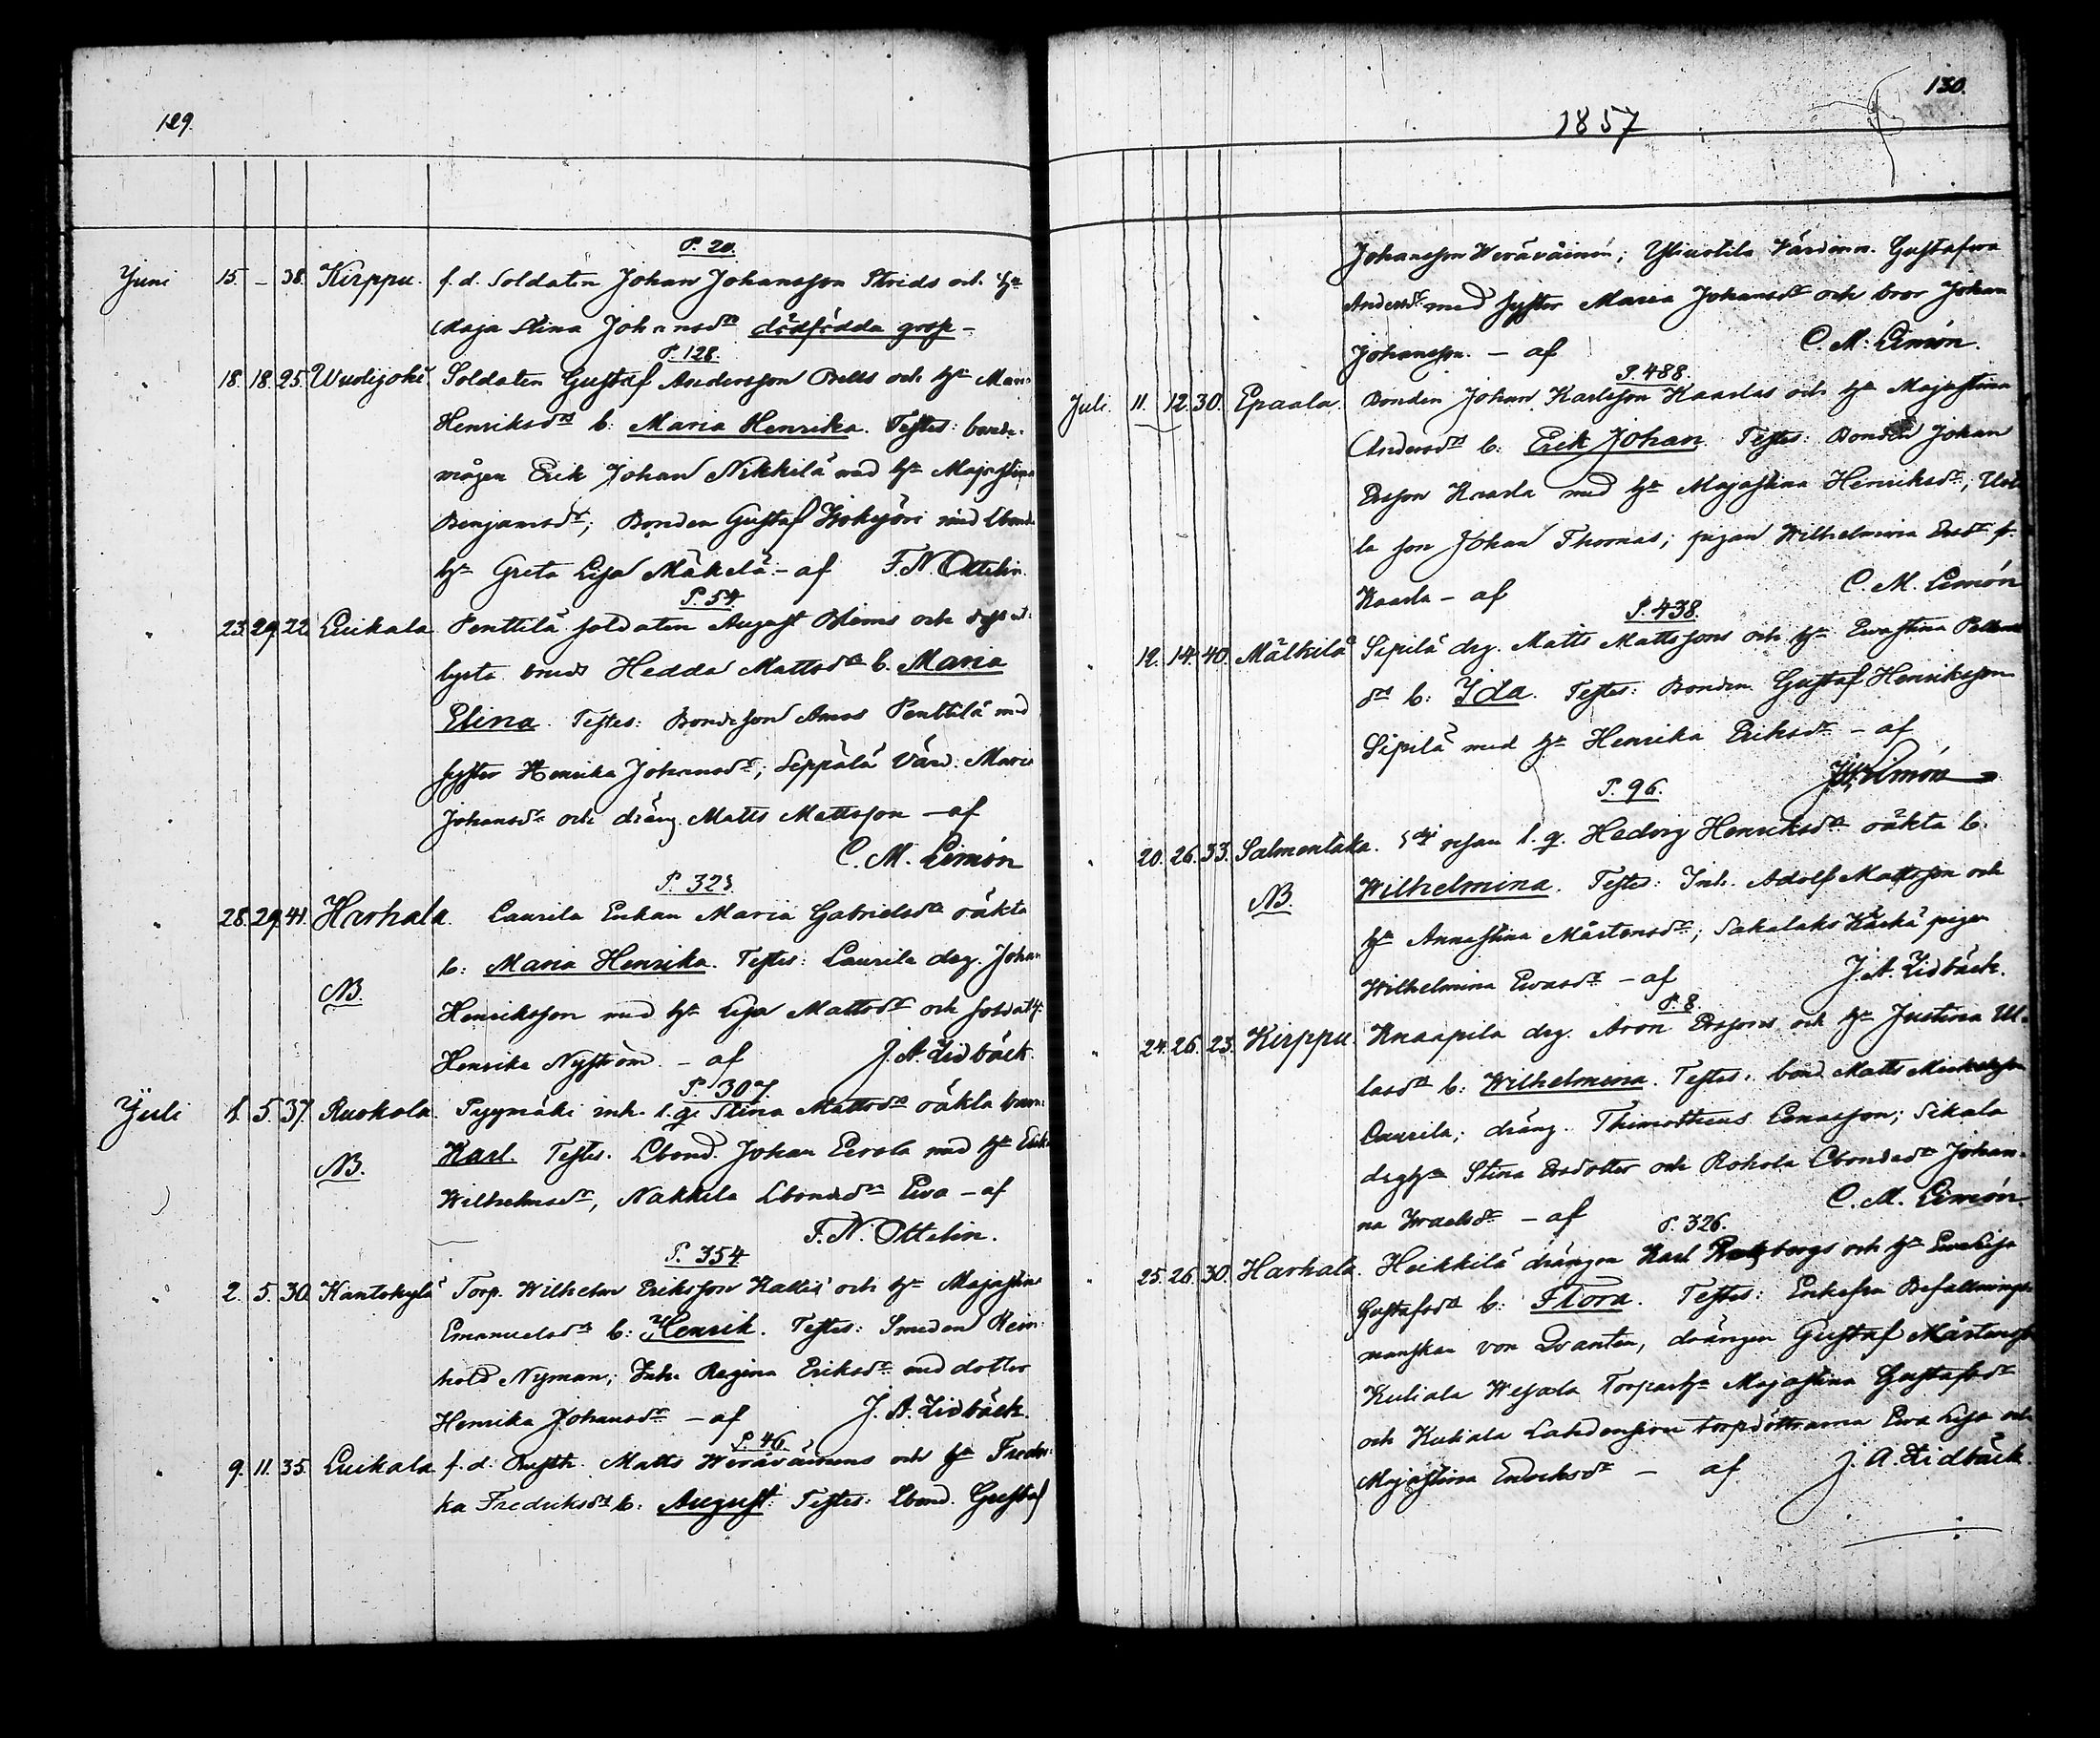 129.
P. 20.
Juni 15. – 38. Kirppu. f. d. Soldaten Johan Johansson Strids och hu
Maja Stina Johansdr dödfödda gosse –
P. 128.
" 18. 18. 25. Wuolijoki Soldaten Gustaf Andersson Bells och hu Maria
Henriksdr b: Maria Henrika. Testes: bonde-
mågen Erik Johan Nikkilä med hu Majastina
Benjamsdr; Bonden Gustaf med Lbonde
hu Greta Lisa Mäkelä – af F. N. Ottelin.
P. 54
" 23. 29. 22 Leikala Penttilä soldaten August och
lysta brud Hedda Mattsdr b. Maria
Elina. Testes: Bondeson Amos Penttilä med
syster Henrika Johansdr; Seppälä Värd: Maria
Johansdr och dräng Matts Mattsson – af
C. M. Limón
P. 325.
" 28. 29. 41. Harhala. Laurila Enkan Maria Gabrielsdr oäkta
NB. b: Maria Henrika. Testes: Laurila drg. Johan
Henriksson med hu Lisa Mattsdr och
Henrika Nyström – af J. A. Lidbäck.
P. 307.
Juli 1. 5. 37. Ruokola. Pyynäki inh. l. q. Stina Mattsdr oäkta barn:
NB. Karl. Testes. Lbond. Johan Eerola med hu
Wilhelmsdr, Nakkila Lbondedr Ewa – af
F. N. Ottelin.
P. 354
" 2. 5. 30. Kantokylä Torp. Wilhelm Eriksson och hu Majastina
Emanuelsdr b: Henrik. Testes: Smeden Rein-
hold Nyman; Inh. Regina Eriksdr med dotter
Henrika Johansdr – af J. A. Lidbäck.
P. 46.
" 9. 11. 35. Leikala f. d. Rusth. Matts Weräväinens och hu Fredri-
ka Fredriksdr b: August. Testes: Lbond. Gustaf
130.
1857
Johansson Weräväinen; Värdinn. Gustafwa
Andersdr med syster Maria Johansdr och bror Johan
Johansson. – af C. M. Limón.
P. 488.
Juli. 11. 12. 30. Epaala. Bonden Johan Karlsson Kaarlas och hu Majastina
Andersdr b: Erik Johan. Testes: Bonden Johan
Ersson Kaarla med hu Majastina Henriksdr;
la son Johan Thomas; pigan Wilhelmina Ersdr fr.
Kaarla – af C. M. Limón
P. 438.
" 12. 14. 40. Mälkilä Sipilä drg. Matts Mattssons och hu Ewastina
dr b: Ida. Testes: Bonden Gustaf Henriksson
Sipilä med hu Henrika Eriksdr – af
Limón
P. 96.
" 20. 26. 33. Salmentaka. 5dje resan l. q. Hedvig Henriksdr oäkta b.
NB. Wilhelmina. Testes: Inh. Adolf Mattsson och
hu Annastina Mårtensdr; Sakalaks pigan
Wilhelmina Ewasdr – af J. A. Lidbäck.
P. 8.
" 24. 26. 23. Kirppu. Knaapila drg. Aron Erssons och hu Justina Ul-
lasdr b: Wilhelmina. Testes: bond. Matts
Laurila; dräng. Thimotheus Ernasson; Sikala
drghu Stina Ersdotter och Rokola Lbondedr Johan-
na Israelsdr – af C. M. Limón.
P. 326.
" 25. 26. 30. Harhala. Heikkilä drängen Karl bergs och hu Ewa Lisa
Gustafsdr b: Flora. Testes: Enkefru Befallnings-
manskan von Qvanten, drängen Gustaf Mårtensson
Kuliala Torparhu Majastina Gustafsdr
och Kuliala torpdöttrarna Ewa Lisa och
Majastina Eriksdr – af J. A. Lidbäck.